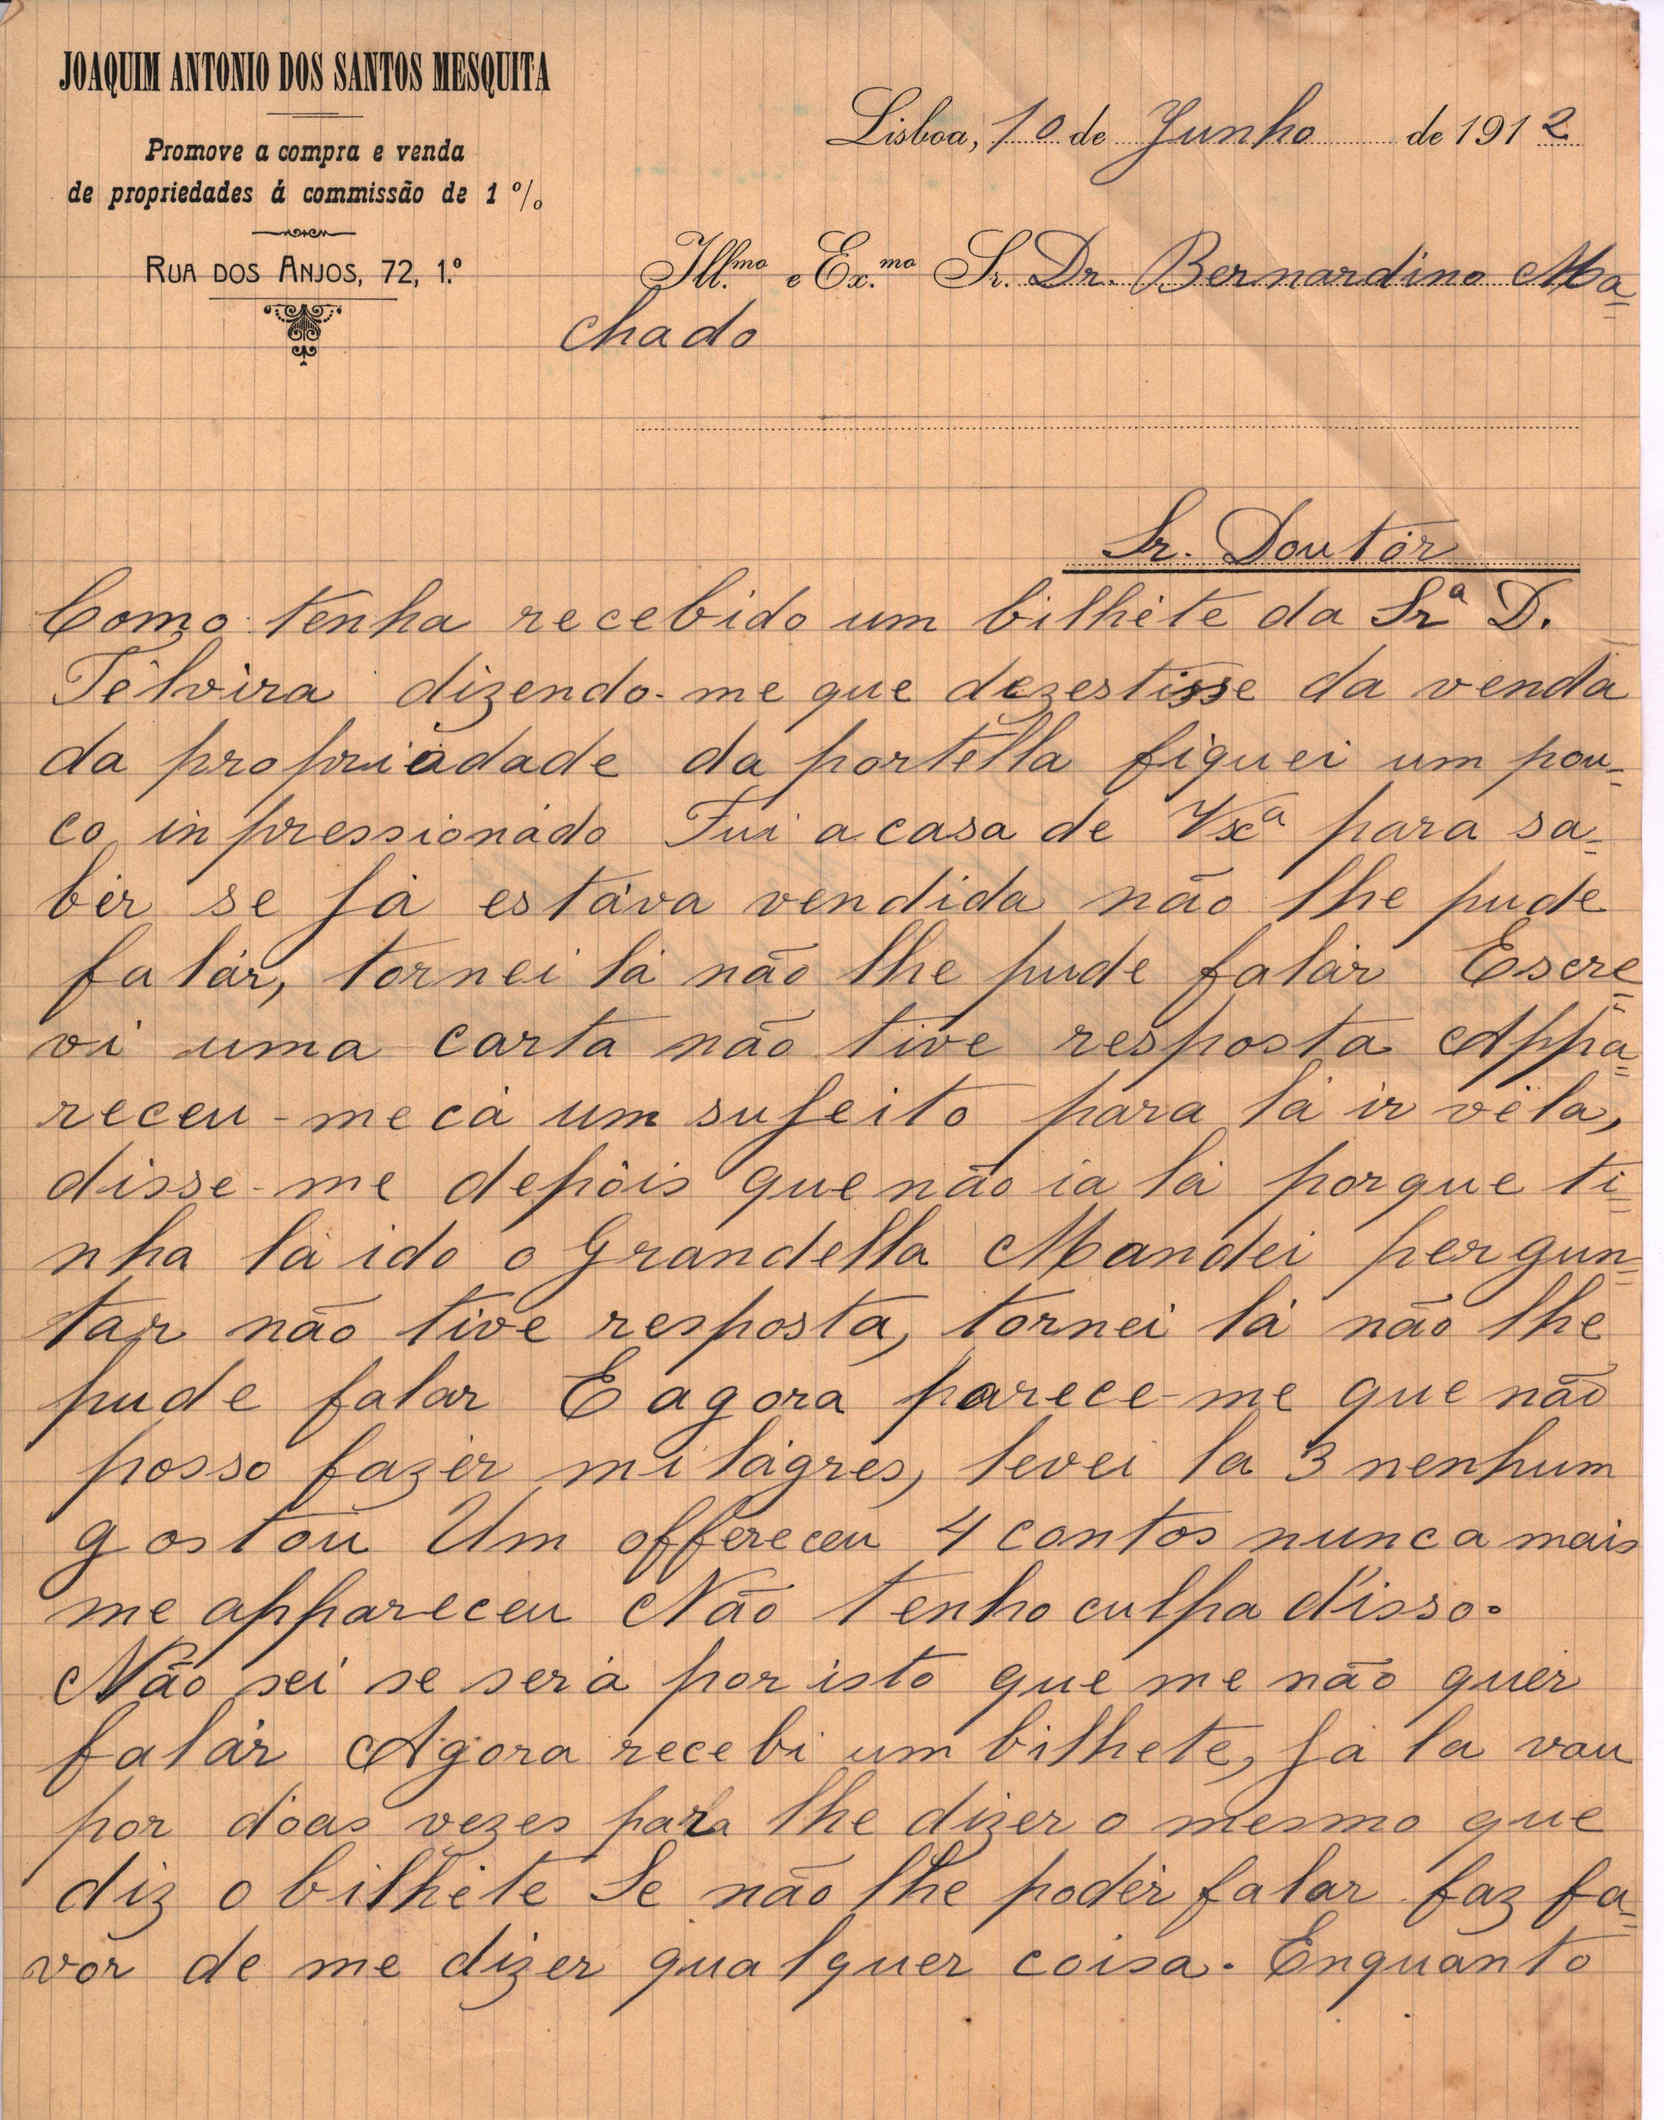 JOAQUIM ANTONIO DOS SANTOS MESQUITA
Promove a compra e venda
de propriedades á commissão de 1 %
RUA DOS ANJOS, 72, 1.º
Lisboa, 10 de Junho de 1912
Ill.mo e Ex.mo Sr. Dr. Bernardino Ma=
chado
Sr. Doutor
Como tenha recebido um bilhete da Srª D.
Télvira dizendo-me que dezestisse da venda
da propriadade da portella fiquei um pou=
co inpressionado Fui a casa de Vxª para sa=
bér se já estáva vendida não lhe pude
falár, tornei lá não lhe pude falár Escre=
vi uma carta não tive resposta Appa=
receu-me cá um sujeito para lá ir vêla,
disse-me depois que não ia lá porque ti=
nha lá ido o Grandella Mandei pergun=
tar não tive resposta, tornei lá não lhe
pude falar E agora parece-me que não
posso fazêr milágres, levei la 3 nenhum
gostou Um offereceu 4 contos nunca mais
me appareceu Não tenho culpa d'isso.
Não sei se será por isto que me não quér
falár Agora recebi um bilhete, já la vou
por doas vezes para lhe dizer o mesmo que
diz o bilhéte Se não lhe podér falar faz fa=
vôr de me dizer qualquer coisa. Enquanto